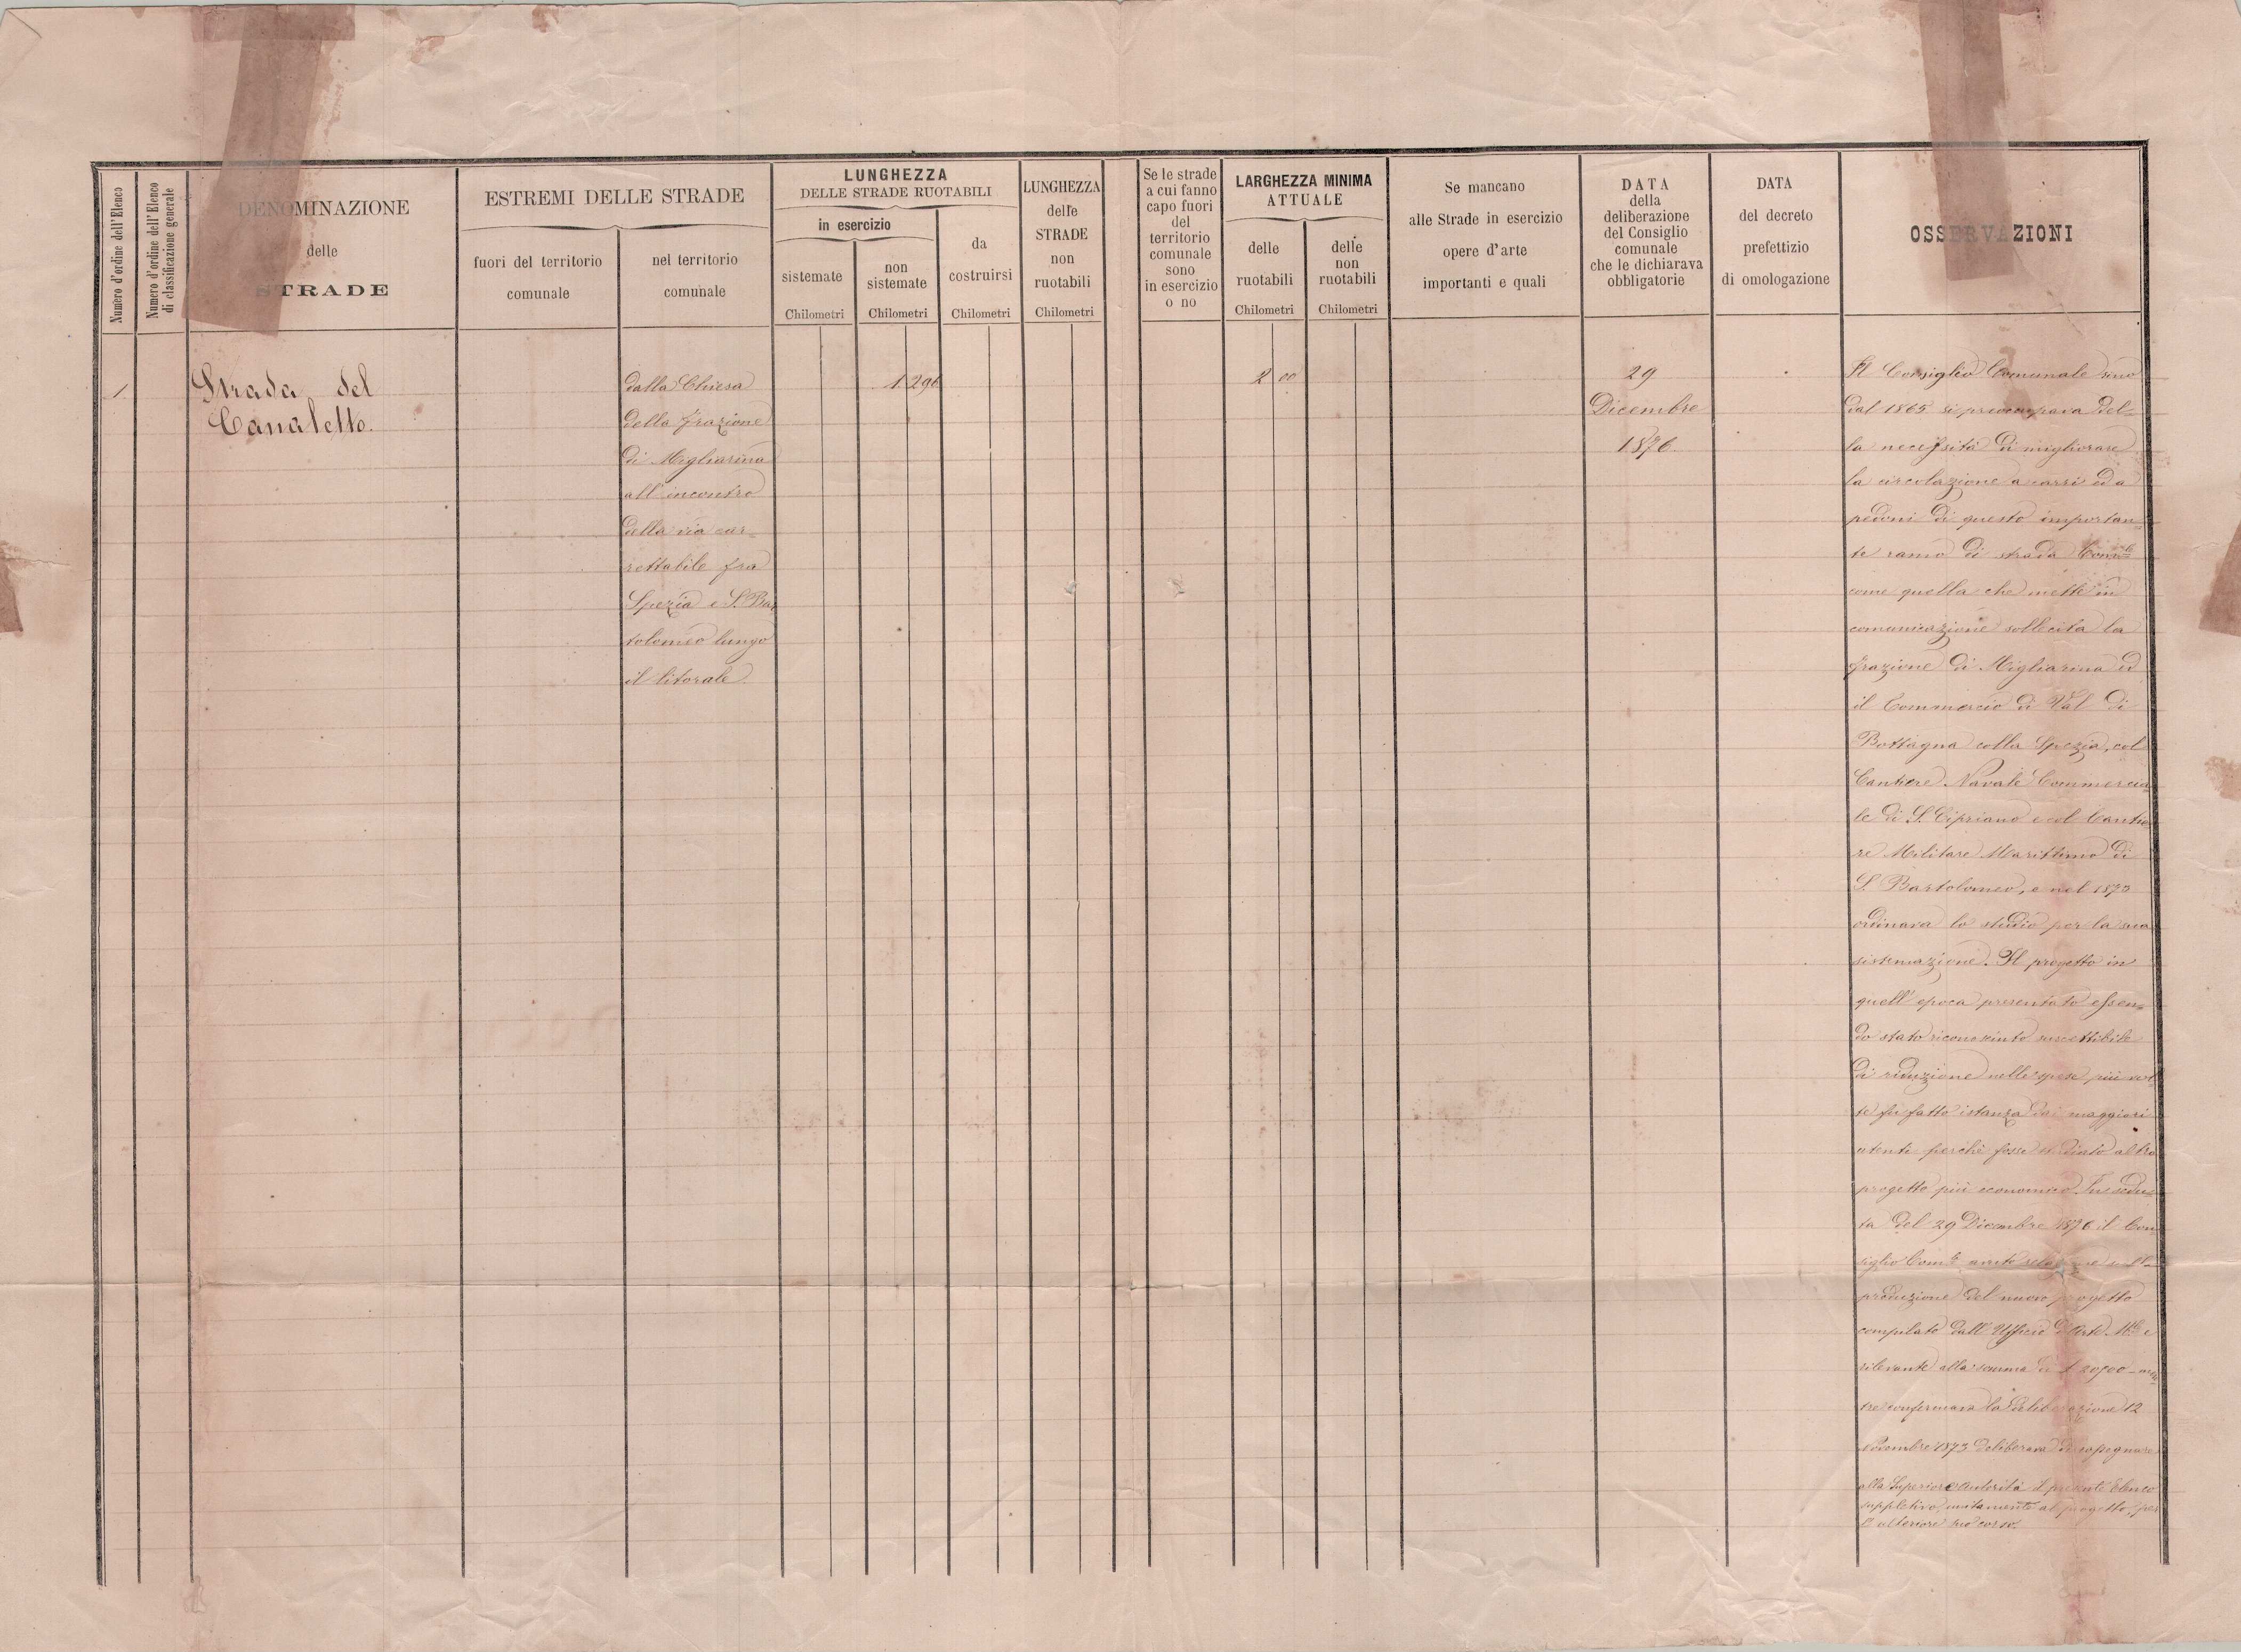 Numero d'ordine dell'Elenco
Numero d'ordine dell'Elenco
di classificazione generale
DENOMINAZIONE
delle
STRADE
ESTREMI DELLE STRADE
fuori del territorio
comunale
nel territorio
comunale
LUNGHEZZA
DELLE STRADE RUOTABILI
in esercizio
sistemate
Chilometri
non
sistemate
Chilometri
da
costruirsi
Chilometri
LUNGHEZZA
delle
STRADE
non
ruotabili
Chilometri
Se le strade
a cui fanno
capo fuori
del
territorio
comunale
sono
in esercizio
o no
LARGHEZZA MINIMA
ATTUALE
delle
ruotabili
Chilometri
delle
non
ruotabili
Chilometri
Se mancano
alle Strade in esercizio
opere d'arte
importanti e quali
DATA
della
deliberazione
del Consiglio
comunale
che le dichiarava
obbligatorie
DATA
del decreto
prefettizio
di omologazione
OSSERVAZIONI
1
Strada del
Canaletto.
dalla Chiesa
della frazione
di Migliarina
all'incontro
della via car-
rettabile fra
Spezia e S. Bar
tolomeo lungo
il litorale.
1 296
2 00
29
Dicembre
1876
Il Consiglio Comunale sino
dal 1865 si preoccupava del-
la necessità di migliorare
la circolazione a carri ed a
pedoni di questo importan-
te ramo di strada Comle
come quella che mette in
comunicazione sollecita la
frazione di Migliarina ed
il Commercio di Val di
Bottagna colla Spezia, col
Cantiere Navale Commercia-
le di S. Cipriano e col Cantie
re Militare Marittimo di
S. Bartolomeo, e nel 1873
ordinava lo studio per la sua
sistemazione. Il progetto in
quell'epoca presentato essen-
do stato riconosciuto suscettibile
di riduzione nelle spese più vol-
te fu fatto istanza dai maggiori
utenti perchè fosse studiato altro
progetto più economico. In sedu-
ta del 29 Dicembre 1876 il Con
siglio Comle
produzione del nuovo progetto
compilato dall'Ufficio d'Arte Mle e
rilevante alla somma di £ 20700 - men
tre confermava la deliberazione 12
Novembre 1873 deliberava di
alla Superiore Autorità il presente Elenco
suppletivo unitamente al progetto, per
l'ulteriore suo corso.